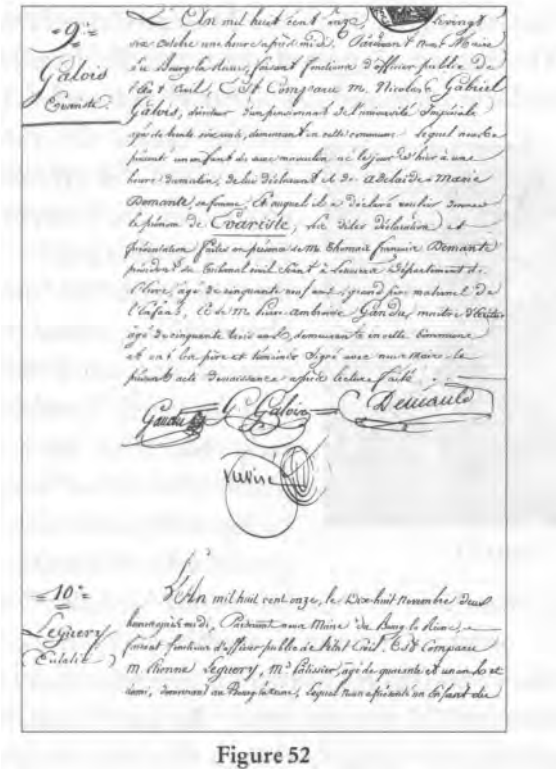 9
Galois
Evariste
L'An mil huit cent onze, le vingt
six octobre une heure après midi, Pardevant nous Maire
du Bourg la Reine, faisant fonctions d'officier public de
l'état Civil, Est Comparu M. Nicolas Gabriel
Galois, directeur d'un pensionnat de l'université Impériale
agé de trente six ans, demeurant en cette commune lequel nous a
présenté un enfant du sexe masculin né le jour d'hier à une
heure du matin, de lui déclarant et de adelaïde-Marie
Demante, sa femme, et auquel il a déclaré vouloir donner
le prénom de Evariste, les dites déclaration et
présentation faites en présence de M. Thomas françois Demante
président du tribunal civil séant à Louviers Département de
l'Eure, âgé de cinquante neuf ans, grand père maternel de
l'Enfant, et de M. pierre ambroise Gandu,
âgé de cinquante trois ans, demeurant en cette Commune
et ont les père et témoins signé avec nous Maire le
présent acte de naissance après lecture faite
Gandu G. Galois Demante
10
Leguery
Eulalie
L'An mil huit cent onze, le Dix huit Novembre Deux
heures après midi, Pardevant nous Maire du Bourg la Reine,
faisant fonctions d'officier public de l'état Civil, Est Comparu
M. Leguery, Md. Pâtissier, agé de quarante et un ans et
demi, demeurant au Bourg la Reine, Lequel nous a présenté un Enfant du
Figure 52